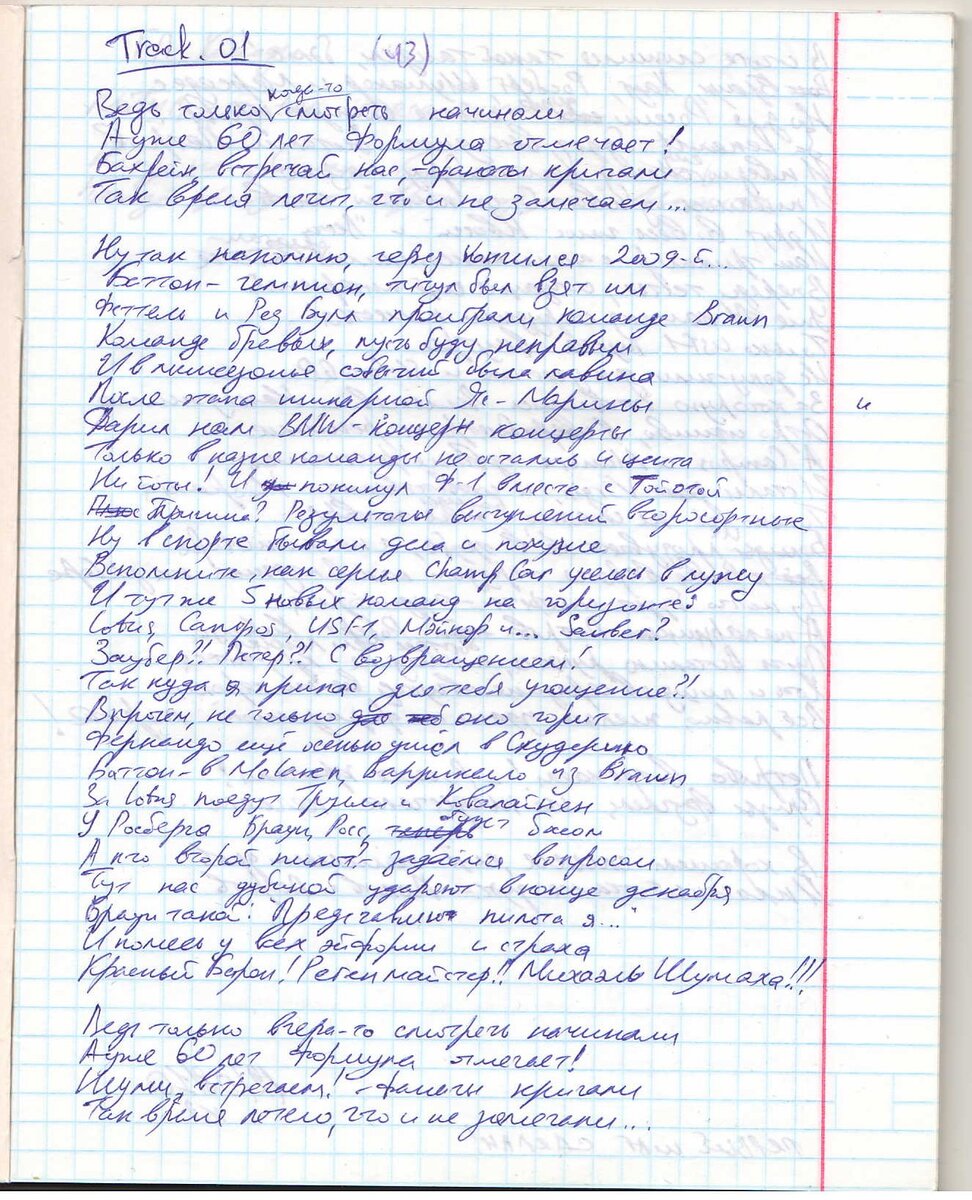 Track. 01 (43)
Ведь только когда-то смотреть начинали
А уже 60 лет Формула отмечает!
Бахрейн, встречай нас, - фанаты кричали
Так время летит, что и не замечаем...
Ну так напомню, чемп кончился 2009-й...
Баттон - чемпион, титул был взят им
Феттель и Ред Булл проиграли команде Braun
Команде бревых, пусть буду неправым
И в межсезонье событий была лавина
После этапа шикарной Яс - Марины
и
Дарил нам BMW - концерн концерты
Только в казне команды не осталось и цента
Ни йоты! И покинул Ф-1 вместе с Тойотой
Причина? Результаты выступлений второсортные
Ну в спорте бывали дела и похуже
Вспомните, как серия Champ Car уселась в лужу
И тут же 5 новых команд на горизонте:
Lotus, Campos, USF1, Мэйнор и... Sauber?
Заубер?! Петер?! С возвращением!
Так куда я припас для тебя угощение?!
Впрочем, не только оно горит
Фернандо ещё осенью ушёл в Скудерию
Баттон - в McLaren, Баррикелло из Braun
За Lotus поедут Трулли и Ковалайнен
У Росберга Браун, Росс, будет басом
А кто второй пилот? - задаёмся вопросом
Тут нас дубиной ударяют в конце декабря
Браун такой: "Представлю пилота я..."
И помесь у всех эйфории и страха
Красный Барон! Регенмайстер!! Михаэль Шумаха!!!
Ведь только вчера-то смотреть начинали
А уже 60 лет Формула отмечает!
Шуми, встречаем! - фанаты кричали
Так время летело, что и не замечали...